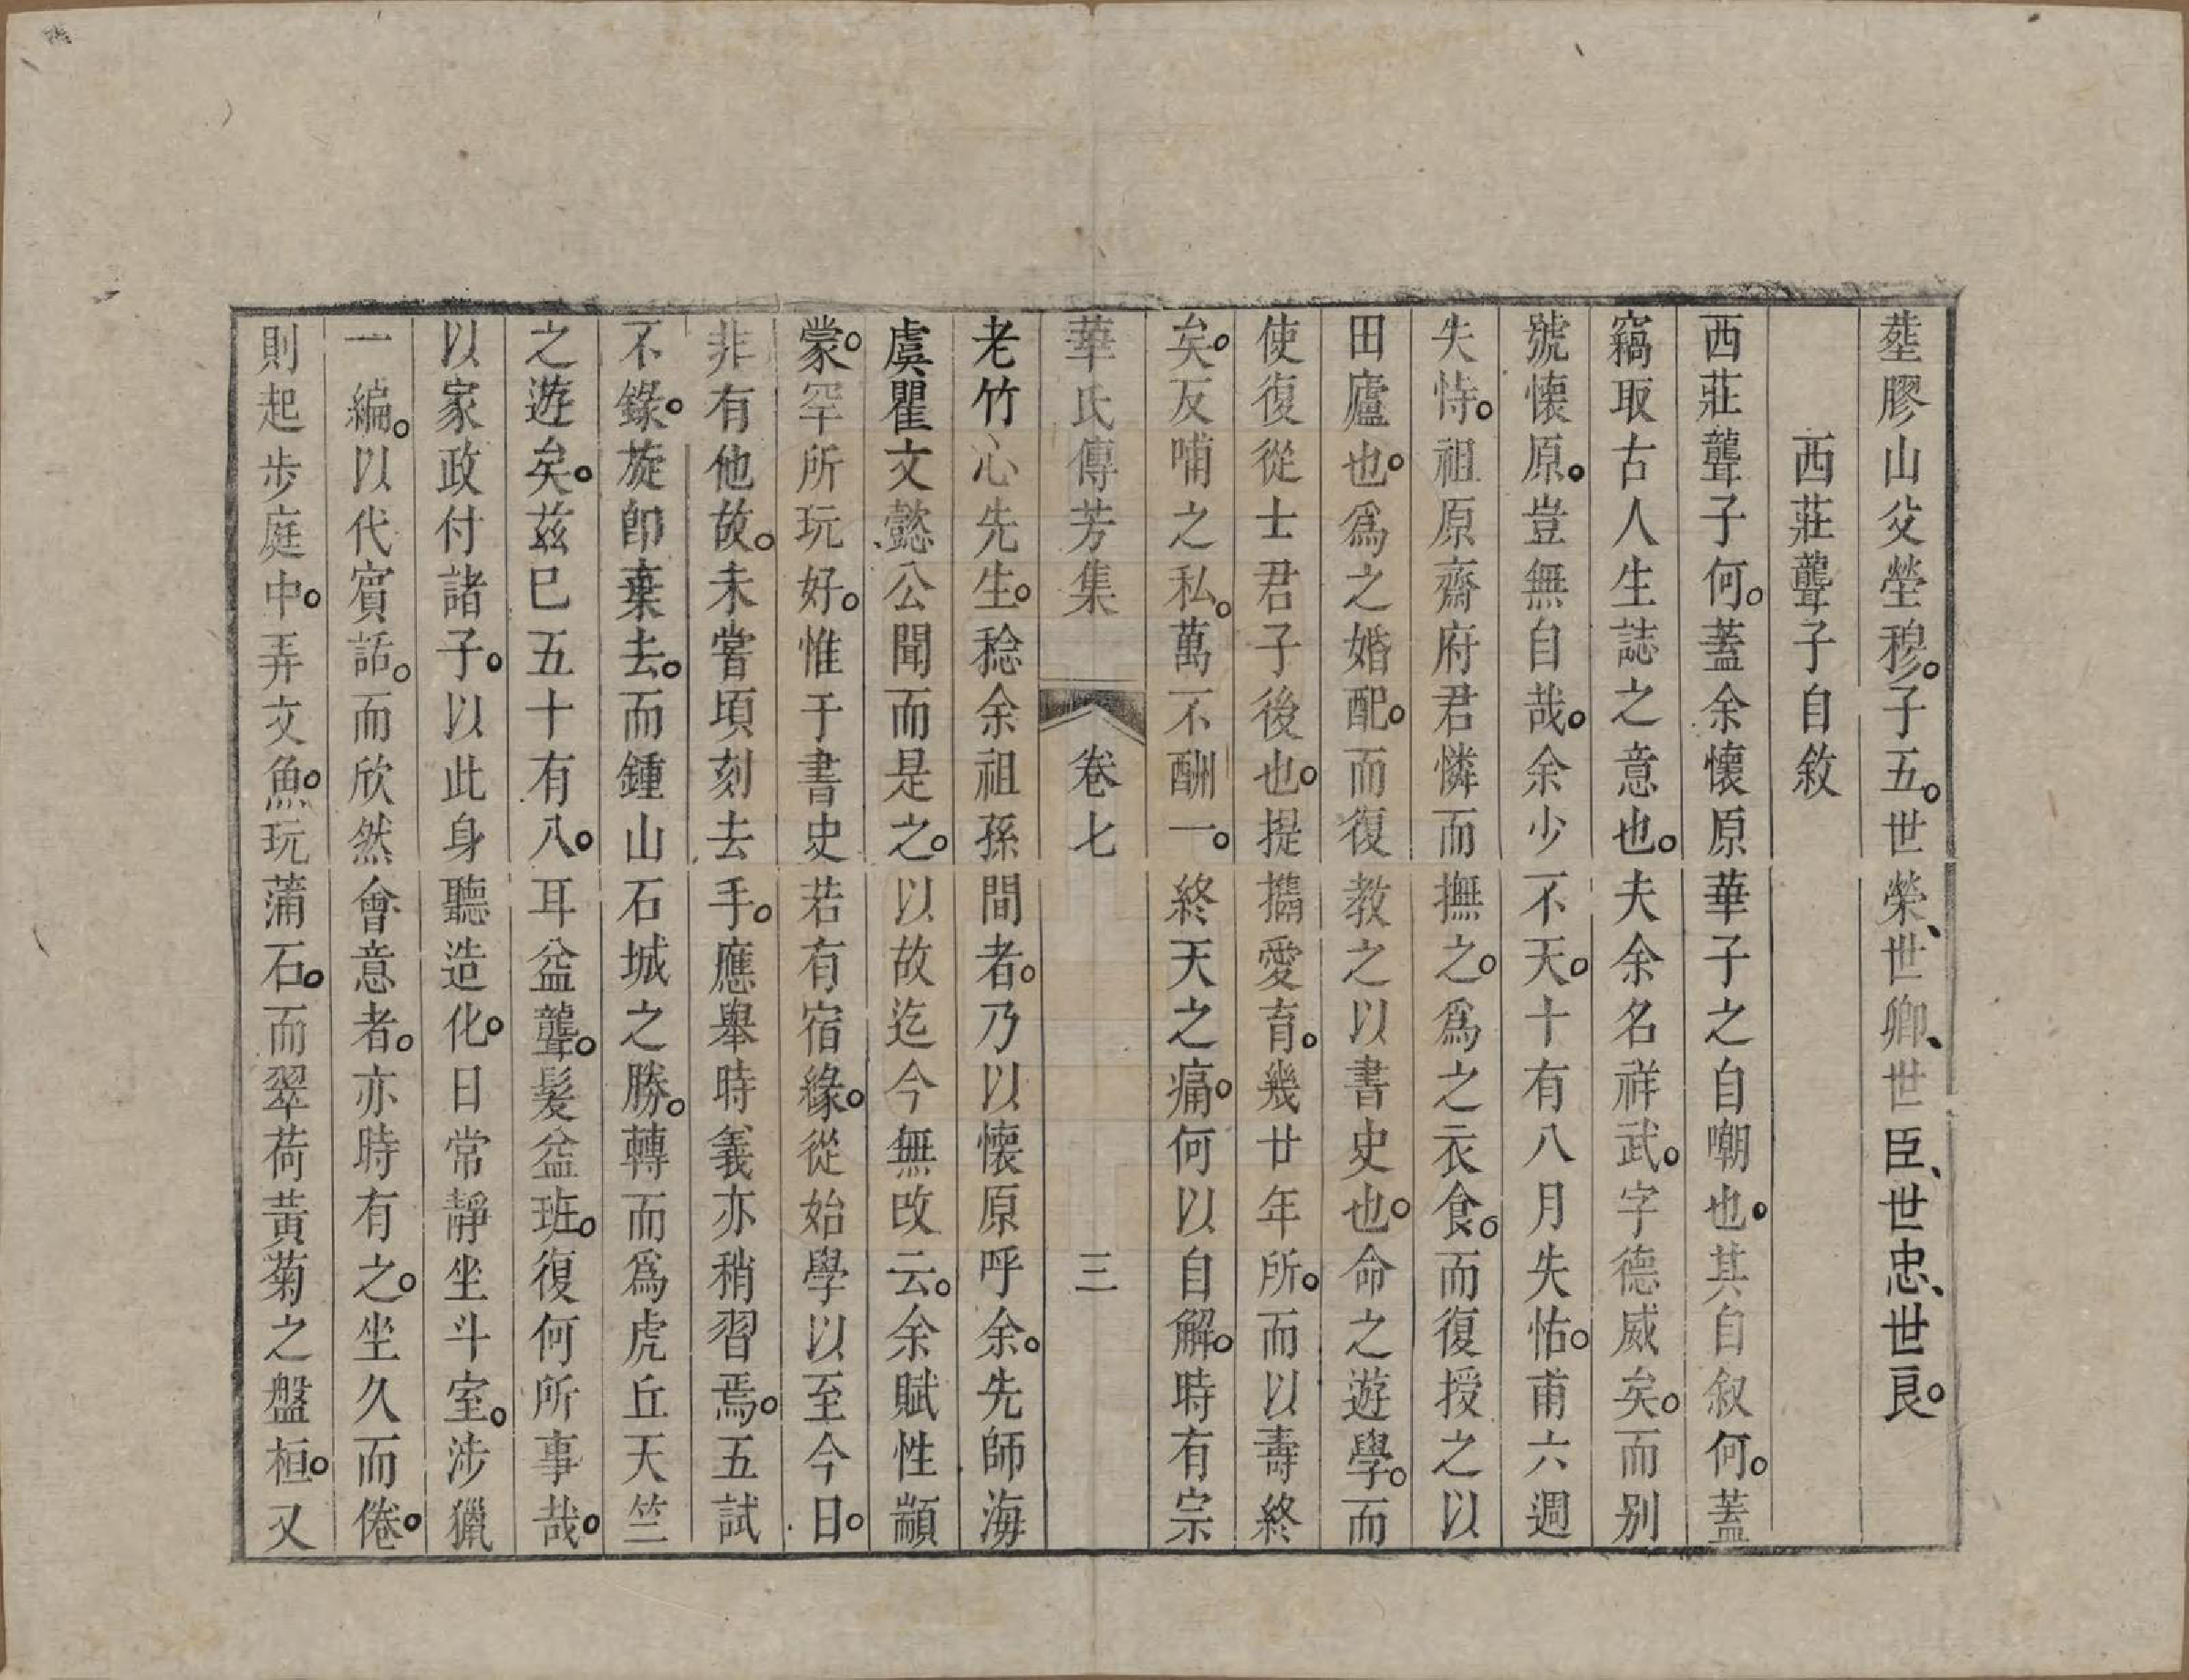 塟膠山父塋穆。子五。世榮、世卿、世臣、世忠、世良。
西莊聾子自敘
西莊聾子何。蓋余懷原華子之自嘲也。其自叙何。蓋
竊取古人生誌之意也。夫余名祥武。字德威矣。而别
號懷原。豈無自哉。余少不天。十有八月失怙。甫六週
失恃。祖原齋府君憐而撫之。爲之衣食。而復授之以
田廬也。爲之婚配。而復教之以書史也。命之遊學。而
使復從士君子後也。提攜愛育。幾廿年所。而以壽終
矣。反哺之私。萬不酬一。終天之痛。何以自解。時有宗
華氏傳芳集 卷七 三
老竹心先生。稔余祖孫間者。乃以懷原呼余。先師海
虞瞿文懿公聞而是之。以故迄今無改云。余賦性顓
蒙。罕所玩好。惟于書史若有宿緣。從始學以至今日。
非有他故。未嘗頃刻去手。應舉時義亦稍習焉。五試
不錄。旋即棄去。而鍾山石城之勝。轉而爲虎丘天竺
之遊矣。茲巳五十有八。耳益聾。髮益班。復何所事哉。
以家政付諸子。以此身聽造化。日常靜坐斗室。涉獵
一編。以代賓話。而欣然會意者。亦時有之。坐久而倦。
則起步庭中。弄文魚。玩蒲石。而翠荷黃菊之盤桓。又